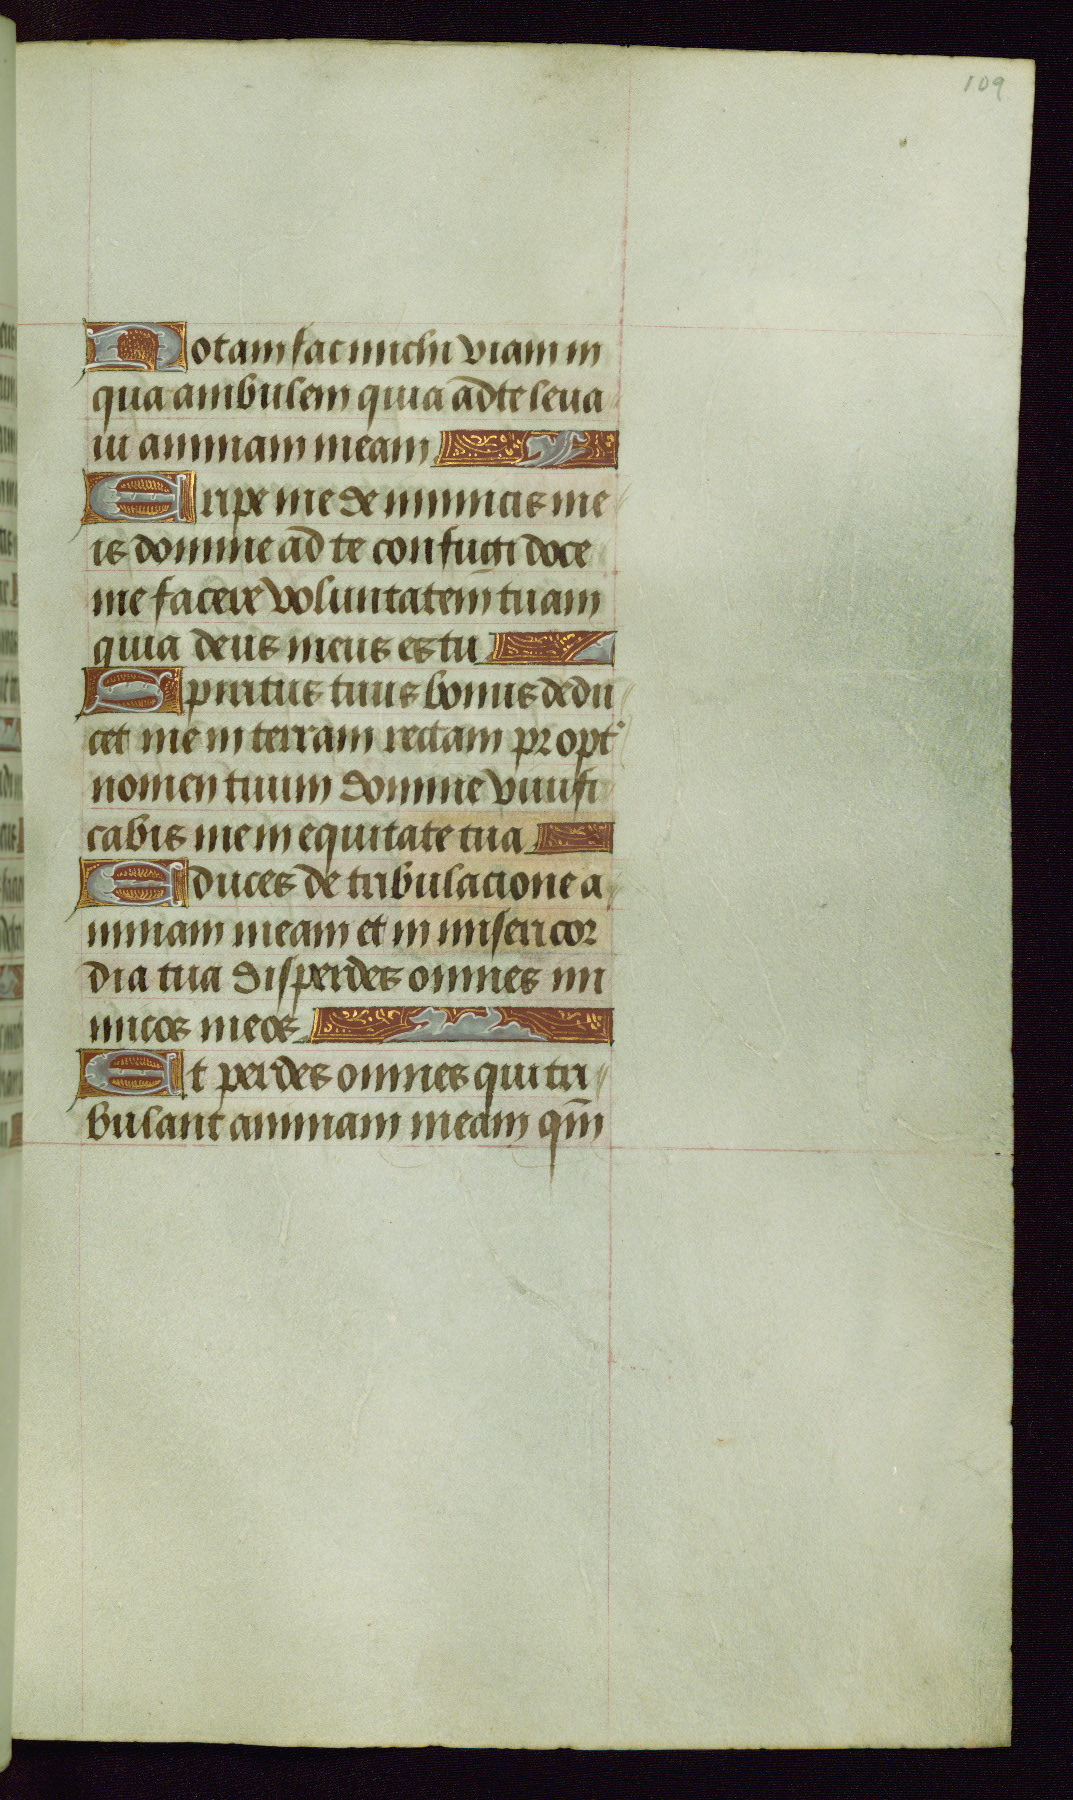 109
Notam fac michi viam in
qua ambulem quia ad te leua
ui animam meam
Eripe me de inimicis me
is domine ad te confugi doce
me facere voluntatem tuam
quia deus meus es tu
Spiritus tuus bonus dedu
cet me in terram rectam propt'
nomen tuum domine viuifi
cabis me in equitate tua
Educes de tribulacione a
nimam meam et in misericor
dia tua disperdes omnes ini
micos meos
Et perdes omnes qui tri
bulant animam meam qm̄